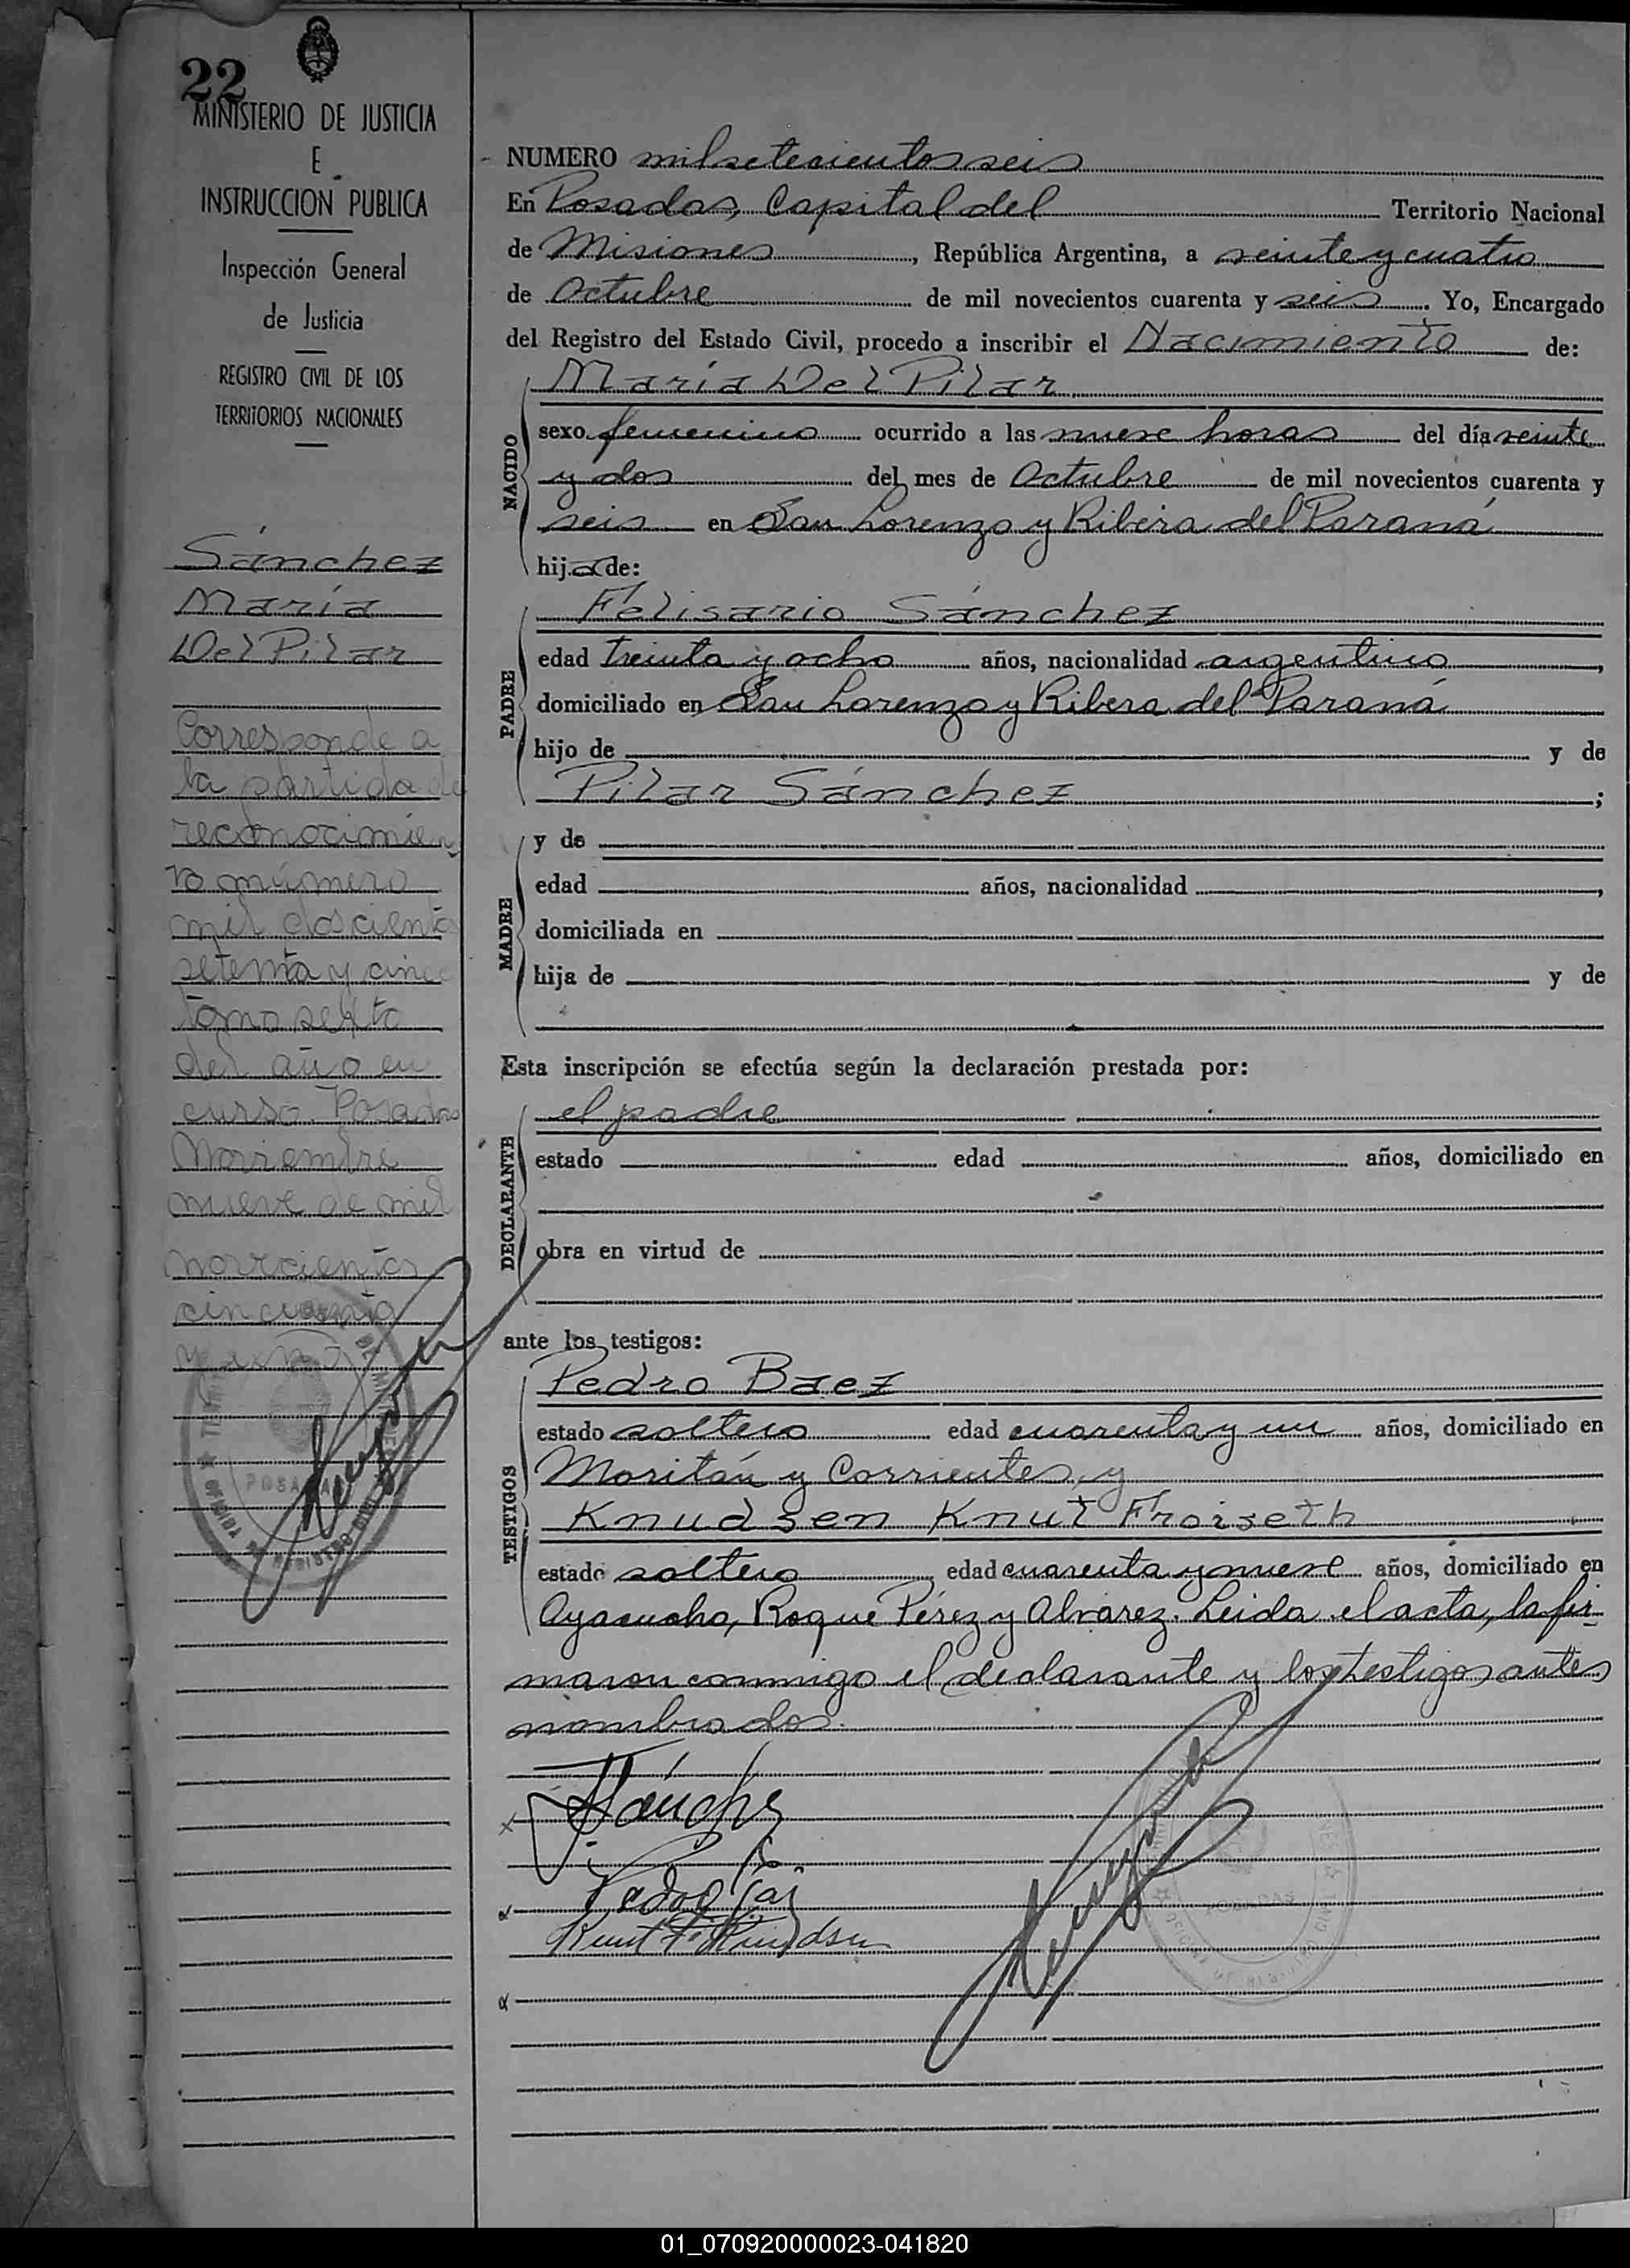 22
MINISTERIO DE JUSTICIA
E
INSTRUCCION PUBLICA
Inspección General
de Justicia
REGISTRO CIVIL DE LOS
TERRITORIOS NACIONALES
Sánchez
María
Del Pilar
Corresponde a
la partida de
reconocimien
to número
mil doscientos
setenta y cinco
tomo sexto
del año en
curso. Posadas
Noviembre
nueve de mil
novecientos
cincuenta
POSADAS
NUMERO mil setecientos seis
En Posadas, Capital del Territorio Nacional
de Misiones, República Argentina, a veinte y cuatro
de Octubre de mil novecientos cuarenta y seis. Yo, Encargado
del Registro del Estado Civil, procedo a inscribir el Nacimiento de:
María Del Pilar
NACIDO
sexo femenino ocurrido a las nueve horas del día veinte
y dos del mes de Octubre de mil novecientos cuarenta y
seis en San Lorenzo y Ribera del Paraná
hija de:
Felisario Sánchez
PADRE
edad treinta y ocho años, nacionalidad argentino,
domiciliado en San Lorenzo y Ribera del Paraná
hijo de y de
Pilar Sánchez;
MADRE
y de
edad años, nacionalidad,
domiciliada en
hija de y de
Esta inscripción se efectúa según la declaración prestada por:
el padre
DECLARANTE
estado edad años, domiciliado en
obra en virtud de
ante los testigos:
Pedro Baez
TESTIGOS
estado soltero edad cuarenta y un años, domiciliado en
Moritán y Corrientes, y
Knudsen Knut Froiseth
estado soltero edad cuarenta y nueve años, domiciliado en
Ayacucho, Roque Pérez y Alvarez. Leida el acta, la fir-
maron conmigo el declarante y los testigos antes
nombrados.
Knut F. Knudsen
POSADAS
01_070920000023-041820